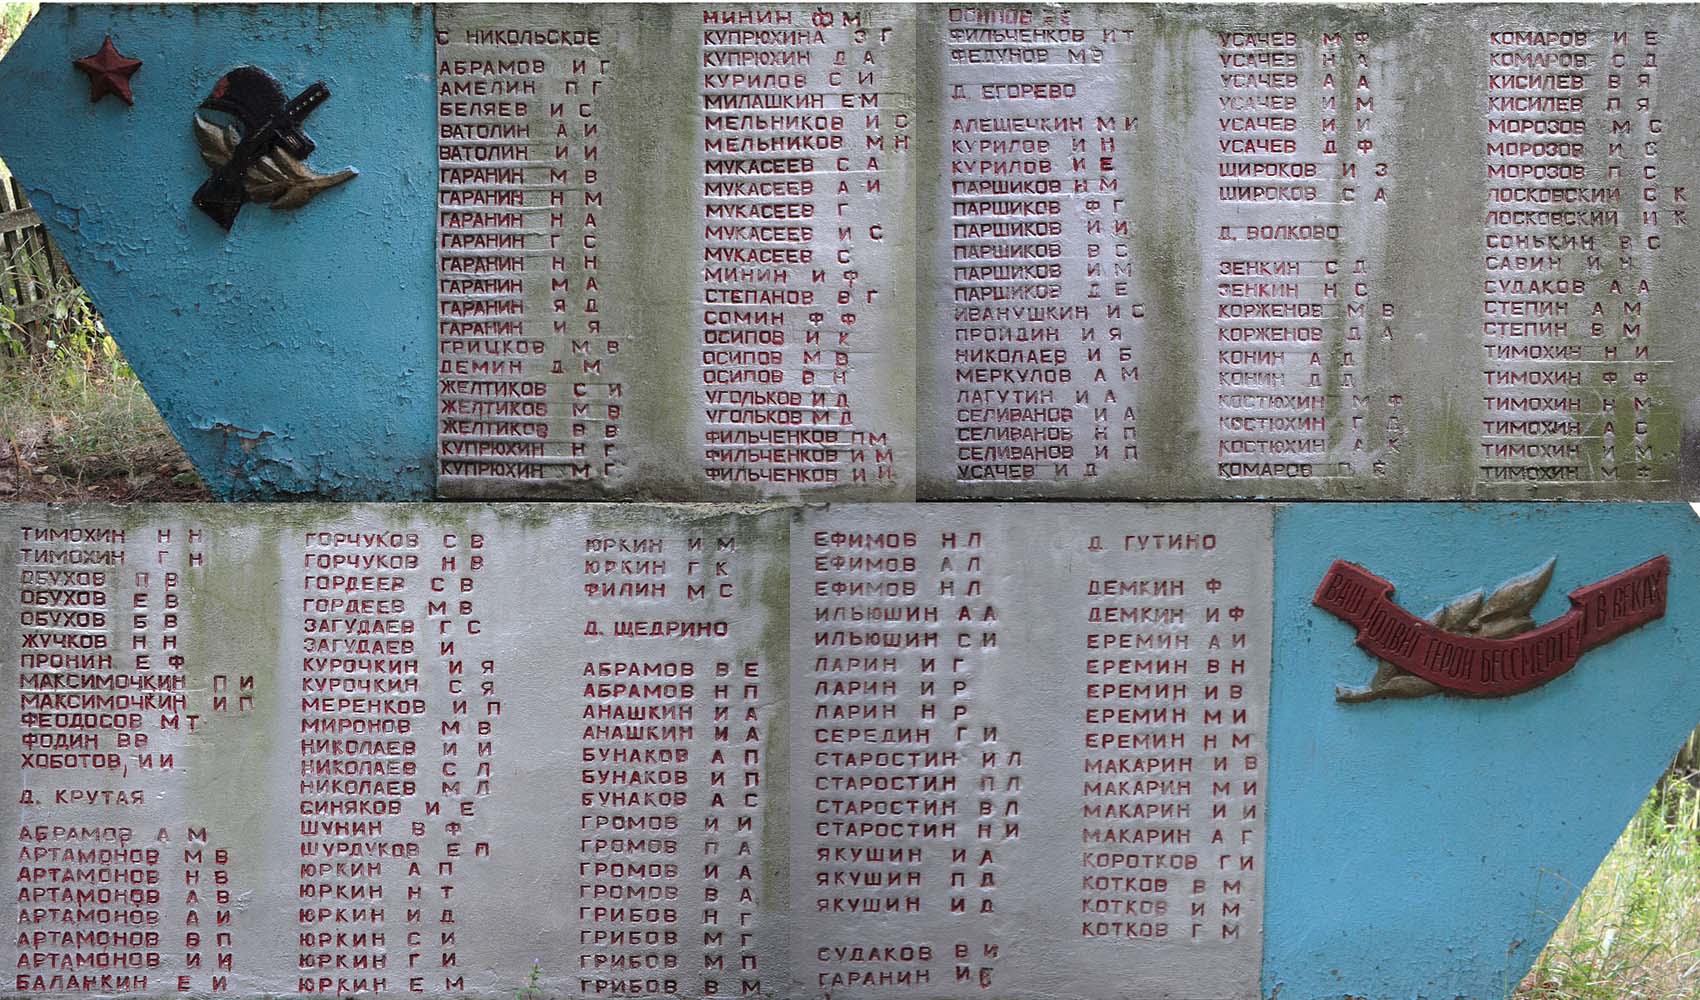 С НИКОЛЬСКОЕ
АБРАМОВ И Г
АМЕЛИН П Г
БЕЛЯЕВ И С
ВАТОЛИН А И
ВАТОЛИН И И
ГАРАНИН М В
ГАРАНИН Н М
ГАРАНИН Н А
ГАРАНИН Г С
ГАРАНИН Н Н
ГАРАНИН М А
ГАРАНИН Я Д
ГАРАНИН И Я
ГРИЦКОВ М В
ДЕМИН Д М
ЖЕЛТИКОВ С И
ЖЕЛТИКОВ М В
ЖЕЛТИКОВ В В
КУПРЮХИН Н Г
КУПРЮХИН М Г
МИНИН Ф М
КУПРЮХИНА З Г
КУПРЮХИН Д А
КУРИЛОВ С И
МИЛАШКИН Е М
МЕЛЬНИКОВ И С
МЕЛЬНИКОВ М Н
МУКАСЕЕВ С А
МУКАСЕЕВ А И
МУКАСЕЕВ Г
МУКАСЕЕВ И С
МУКАСЕЕВ С
МИНИН И Ф
СТЕПАНОВ В Г
СОМИН Ф Ф
ОСИПОВ И К
ОСИПОВ М В
ОСИПОВ В Н
УГОЛЬКОВ И Д
УГОЛЬКОВ М Д
ФИЛЬЧЕНКОВ П М
ФИЛЬЧЕНКОВ И М
ФИЛЬЧЕНКОВ И Н
ОСИПОВ
ФИЛЬЧЕНКОВ И Т
ФЕДУНОВ М
Д. ЕГОРЕВО
АЛЕШЕЧКИН М И
КУРИЛОВ И Н
КУРИЛОВ И Е
ПАРШИКОВ Н М
ПАРШИКОВ Ф Г
ПАРШИКОВ И И
ПАРШИКОВ В С
ПАРШИКОВ И М
ПАРШИКОВ Д Е
ИВАНУШКИН И С
ПРОЙДИН И Я
НИКОЛАЕВ И Б
МЕРКУЛОВ А М
ЛАГУТИН И А
СЕЛИВАНОВ И А
СЕЛИВАНОВ Н П
СЕЛИВАНОВ И П
УСАЧЕВ И Д
УСАЧЕВ М Ф
УСАЧЕВ Н А
УСАЧЕВ А А
УСАЧЕВ И М
УСАЧЕВ И И
УСАЧЕВ Д Ф
ШИРОКОВ И З
ШИРОКОВ С А
Д. ВОЛКОВО
ЗЕНКИН С Д
ЗЕНКИН Н С
КОРЖЕНОВ М В
КОРЖЕНОВ Д А
КОНИН А Д
КОНИН Д Д
КОСТЮХИН М Ф
КОСТЮХИН Г Д
КОСТЮХИН А К
КОМАРОВ П Е
КОМАРОВ И Е
КОМАРОВ С Д
КИСИЛЕВ В Я
КИСИЛЕВ П Я
МОРОЗОВ М С
МОРОЗОВ И С
МОРОЗОВ П С
ЛОСКОВСКИЙ С К
ЛОСКОВСКИЙ И К
СОНЬКИН В С
САВИН И Н
СУДАКОВ А А
СТЕПИН А М
СТЕПИН В М
ТИМОХИН Н И
ТИМОХИН Ф Ф
ТИМОХИН Н М
ТИМОХИН А С
ТИМОХИН И М
ТИМОХИН М Ф
ТИМОХИН Н Н
ТИМОХИН Г Н
ОБУХОВ П В
ОБУХОВ Е В
ОБУХОВ Б В
ЖУЧКОВ Н Н
ПРОНИН Е Ф
МАКСИМОЧКИН П И
МАКСИМОЧКИН И П
ФЕОДОСОВ М Т
ФОДИН В В
ХОБОТОВ, И И
Д. КРУТАЯ
АБРАМОВ А М
АРТАМОНОВ М В
АРТАМОНОВ Н В
АРТАМОНОВ А В
АРТАМОНОВ А И
АРТАМОНОВ В П
АРТАМОНОВ И И
БАЛАНКИН Е И
ГОРЧУКОВ С В
ГОРЧУКОВ Н В
ГОРДЕЕР С В
ГОРДЕЕВ М В
ЗАГУДАЕВ Г С
ЗАГУДАЕВ И
КУРОЧКИН И Я
КУРОЧКИН С Я
МЕРЕНКОВ И П
МИРОНОВ М В
НИКОЛАЕВ И И
НИКОЛАЕВ С Л
НИКОЛАЕВ М Л
СИНЯКОВ И Е
ШУНИН В Ф
ШУРДУКОВ Е П
ЮРКИН А П
ЮРКИН Н Т
ЮРКИН И Д
ЮРКИН С И
ЮРКИН Г И
ЮРКИН Е М
ЮРКИН И М
ЮРКИН Г К
ФИЛИН М С
Д. ЩЕДРИНО
АБРАМОВ В Е
АБРАМОВ Н П
АНАШКИН И А
АНАШКИН И А
БУНАКОВ А П
БУНАКОВ И П
БУНАКОВ А С
ГРОМОВ И И
ГРОМОВ П А
ГРОМОВ И А
ГРОМОВ В А
ГРИБОВ Н Г
ГРИБОВ М Г
ГРИБОВ М П
ГРИБОВ В М
ЕФИМОВ Н Л
ЕФИМОВ А Л
ЕФИМОВ Н Л
ИЛЬЮШИН А А
ИЛЬЮШИН С И
ЛАРИН И Г
ЛАРИН И Р
ЛАРИН Н Р
СЕРЕДИН Г И
СТАРОСТИН И Л
СТАРОСТИН П Л
СТАРОСТИН В Л
СТАРОСТИН Н И
ЯКУШИН И А
ЯКУШИН П Д
ЯКУШИН И Д
СУДАКОВ В И
ГАРАНИН И С
Д. ГУТИНО
ДЕМКИН Ф
ДЕМКИН И Ф
ЕРЕМИН А И
ЕРЕМИН В Н
ЕРЕМИН И В
ЕРЕМИН М И
ЕРЕМИН Н М
МАКАРИН И В
МАКАРИН М И
МАКАРИН И И
МАКАРИН А Г
КОРОТКОВ Г И
КОТКОВ В М
КОТКОВ И М
КОТКОВ Г М
ВАШ ПОДВИГ ГЕРОИ БЕССМЕРТЕН В ВЕКАХ